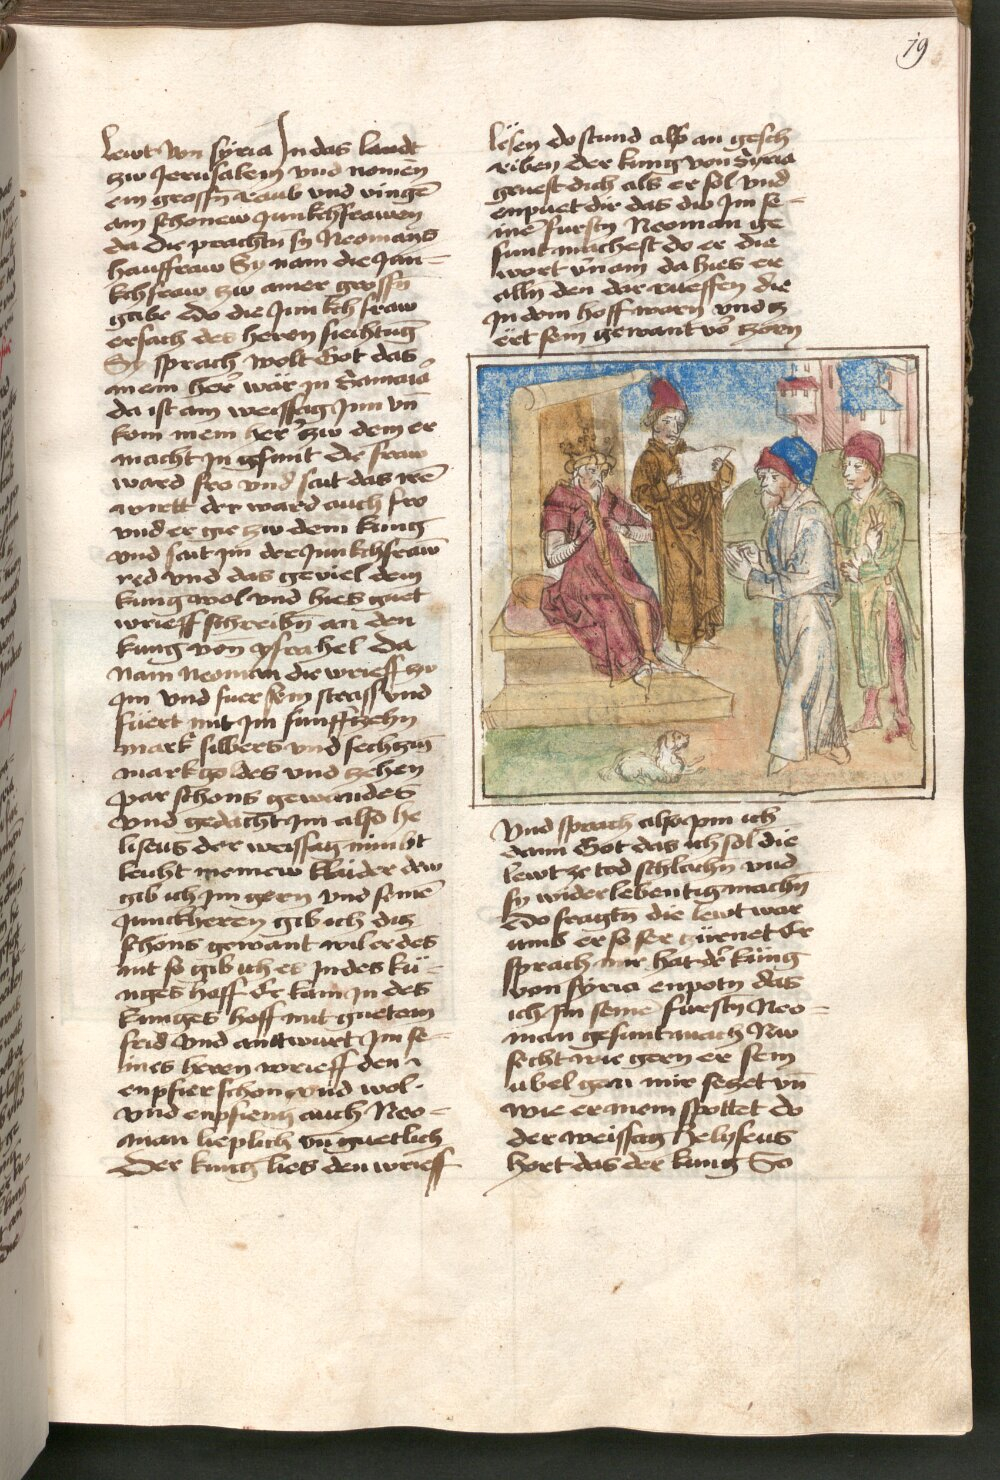 19
lewt von syria In das landt
zw Jerusalem vnd nomen
ein grossn raub vnd viengē
ain schonew Junkchfrawen
da die prachtn sy Neomans
hauffraw Sy nam die Jun-
kchfraw zw ainer grossn
gabe Do die Junkchfraw
ersach des heren siechtūg
Sy sprach wolt Got das
mein her wär in Samariā
da ist ain weissag Inn vn̄
kom mein her zw dem er
macht in gesunt Die fraw
ward fro vnd sait das irē
wirtt der ward auch fro
vnd er gie zw dem kung
vnd sait im der Junkchfraw
red vnd das geviel dem
kung wol vnd hies guet
wrieff schreibn̄ an den
kung von ysrahel Da
Nam Neoman die wrieff zu
im vnd fuer sein strass vnd
füert mit Im funfftzehn
mark silbers vnd sechczin
mark goldes vnd zehen
par schons gewandes
vnd gedacht Im also he
liseus der weissag nimbt
leicht meinew klaider dew
gib ich im gern vnd seinē
Junckheren gib ich ditz
schöns gewant wil er des
nit so gib ich es In des kü-
niges hoff der kam In des
kuniges hoff mit guetem
frid vnd anttwurt Im se-
ines heren wrieff den
enpfier schon vnd wol
vnd enpfieng auch Neo-
man lieplich vn̄ guetlich
Der kung lies den wrieff
lesen do stund also an gesch
riben der kung von Syria
gruest dich als er sol vnd
enpuet dir das dw Im se-
inē fursten Neoman ge
sunt machest do er die
wort v̄nam da hies er
alln̄ den dar rueffen die
In dem hoff warn vnd z
ert sein gewant vō zorn
vnd sprach also pin ich
dann Got das ich sol die
lewt ze tod schlachn̄ vnd
sy wider lebentig machn̄
Do fragtn die lewt war
umb er so ser zürnet Er
sprach mir hat der küng
von syria enpotn das
ich Im seinē fursten Neo-
man gesunt mach Nw
secht wie gern er sein
übel gen mir seczet vn̄
wie er mein spottet do
der weissag Helyseus
hort das der kung So